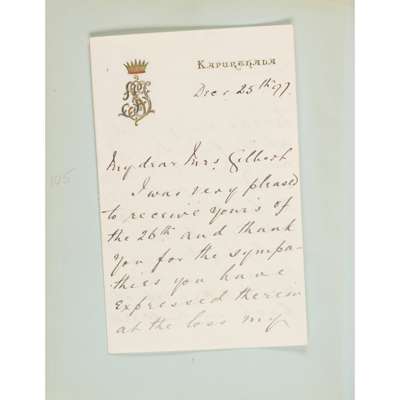 KAPURTHALA
Dec. 25th 97.
My dear Mrs Gilbert
I was very pleased
to receive your's of
the 26th and thank
you for the sympa-
thies you have
expressed therein
at the loss my
105